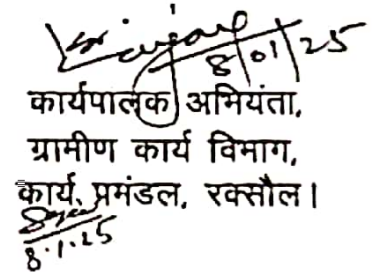 8/01/25
कार्यपालक अभियंता,
ग्रामीण कार्य विभाग,
कार्य, प्रमंडल, रक्सौल।
8.1.25